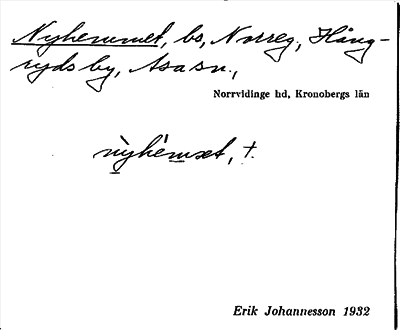 Nyhemmet, bs, Norreg, Hång-
ryds by, Asa sn.,
Norrvidinge hd, Kronobergs län
nỳhèmet, †.
Erik Johannesson 1932